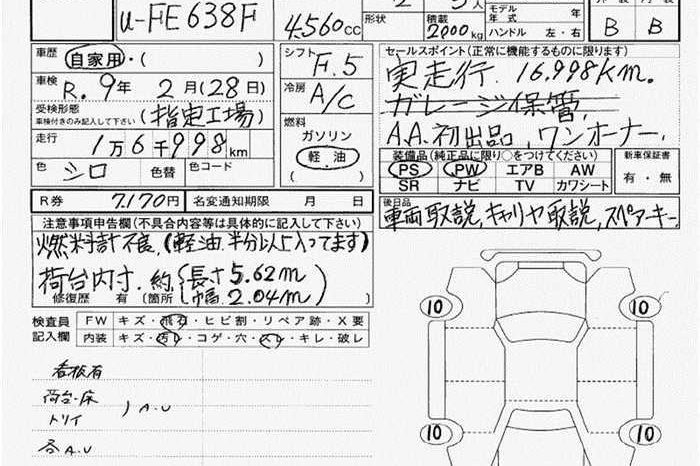 U-FE638F
4,560cc
形状
積載 2000kg
モデル年式 年
ハンドル 左・右
B B
車歴 自家用・( )
シフト F.5
セールスポイント(正常に機能するものに限ります)
車検 R. 9年 2月(28日)
冷房 A/C
実走行. 16,998km.
ガレージ保管
受検形態
車検付きのみ記入して下さい (指定工場)
燃料
ガソリン
軽油
A.A.初出品, ワンオーナー,
走行 1万6千998km
色 シロ 色替 色コード
装備品(純正品に限り○をつけてください)
PS PW エアB AW
SR ナビ TV カワシート
新車保証書
有・無
R券 7,170円 名変通知期限 月 日
後日品
車両取説,キャリヤ取説,スペアーキー,
注意事項申告欄(不具合内容等は具体的に記入して下さい)
燃料計不良,(軽油半分以上入ってます)
荷台内寸.約(長さ5.62m
幅 2.04m)
修復歴 有(箇所
検査員記入欄
FW キズ・飛石・ヒビ割・リペア跡・X要
内装 キズ・汚レ・コゲ・穴・スレ・キレ・破レ
看板有
荷台・床
トリイ
)A.U
各A.U
10 10
10 10